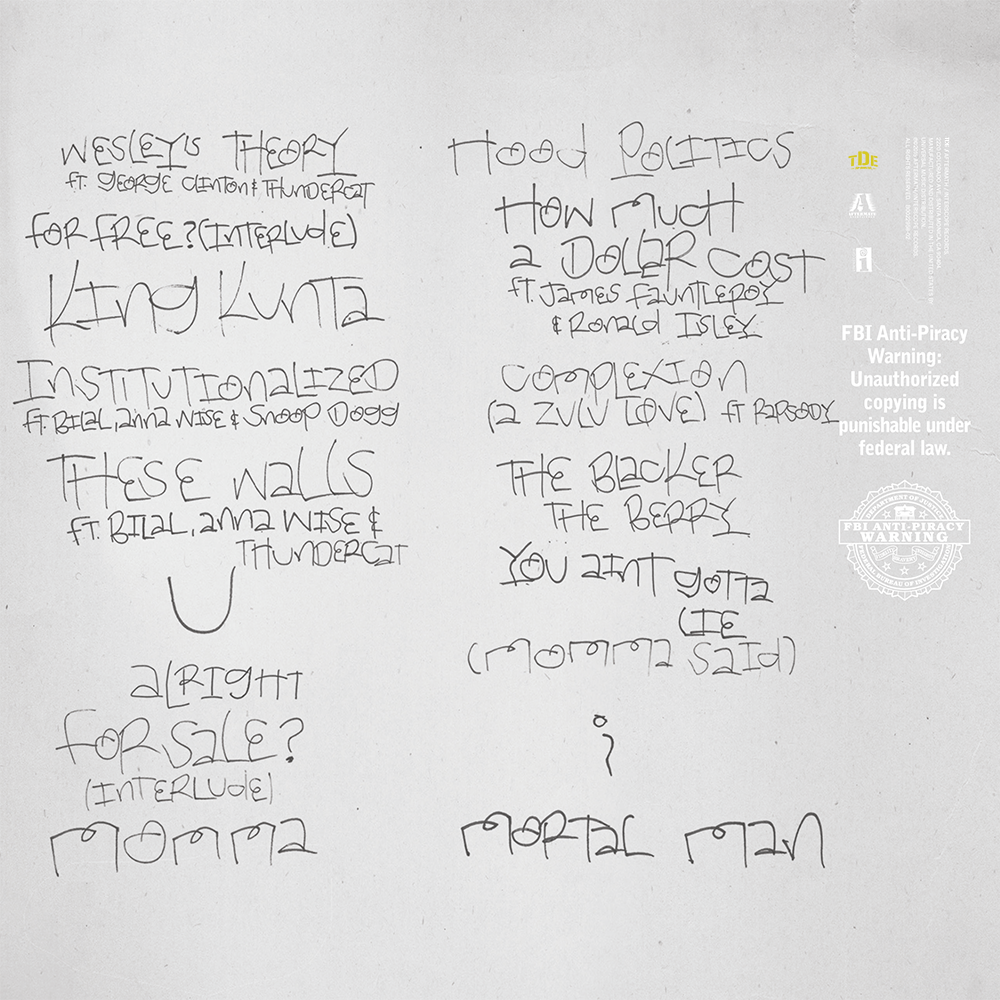 WESLEY'S THEORY
ft. GEORGE CLINTON & THUNDERCAT
FOR FREE? (INTERLUDE)
KING KUNTA
INSTITUTIONALIZED
ft. BILAL, ANNA WISE & SNOOP DOGG
THESE WALLS
ft. BILAL, ANNA WISE &
THUNDERCAT
U
ALRIGHT
FOR SALE?
(INTERLUDE)
MOMMA
HOOD POLITICS
HOW MUCH
A DOLLAR COST
ft. JAMES FAUNTLEROY
& RONALD ISLEY
COMPLEXION
(A ZULU LOVE) ft RAPSODY
THE BLACKER
THE BERRY
YOU AINT GOTTA
LIE
(MOMMA SAID)
i
MORTAL MAN
TDE
FBI Anti-Piracy
Warning:
Unauthorized
copying is
punishable under
federal law.
DEPARTMENT OF JUSTICE
FBI ANTI-PIRACY
WARNING
FEDERAL BUREAU OF INVESTIGATION